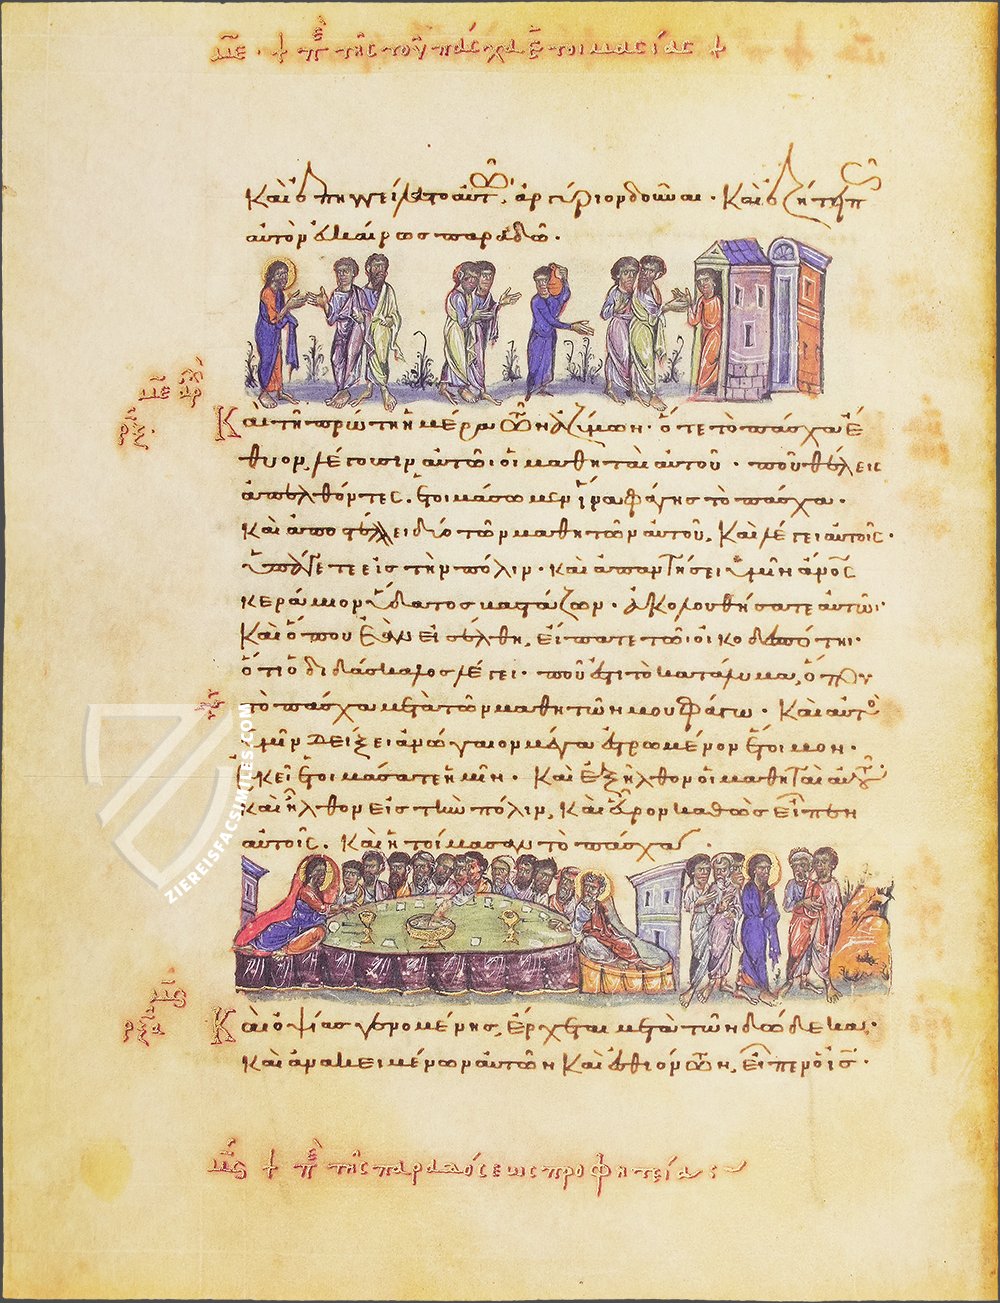 με · + πε τῆς τοῦ πάσχα ἑτοιμασίας +
Καὶ ἐπηγγείλαντο αὐτῷ, ἀργύριον δοῦναι · Καὶ ἐζήτει πῶς
αὐτὸν εὐκαίρως παραδῷ ·
με
Καὶ τῇ πρώτῃ ἡμέρᾳ τῶν ἀζύμων · ὅτε τὸ πάσχα ἔ
θυον, λέγουσιν αὐτῷ οἱ μαθηταὶ αὐτοῦ · ποῦ θέλεις
ἀπελθόντες ἑτοιμάσωμεν ἵνα φάγῃς τὸ πάσχα ·
Καὶ ἀποστέλλει δύο τῶν μαθητῶν αὐτοῦ, Καὶ λέγει αὐτοῖς ·
ὑπάγετε εἰς τὴν πόλιν · καὶ ἀπαντήσει ὑμῖν ἄνος
κεράμιον ὕδατος βαστάζων · ἀκολουθήσατε αὐτῷ ·
Καὶ ὅπου ἐὰν εἰσέλθῃ, εἴπατε τῷ οἰκοδεσπότῃ ·
ὅτι ὁ διδάσκαλος λέγει · ποῦ ἐστι τὸ κατάλυμα, ὅπου
τὸ πάσχα μετὰ τῶν μαθητῶν μου φάγω · Καὶ αὐτὸς
ὑμῖν δείξει ἀνώγαιον μέγα ἐστρωμένον ἕτοιμον ·
Ἐκεῖ ἑτοιμάσατε ἡμῖν · Καὶ ἐξῆλθον οἱ μαθηταὶ αὐτοῦ
Καὶ ἦλθον εἰς τὴν πόλιν, Καὶ εὗρον καθὼς εἶπεν
αὐτοῖς · Καὶ ἡτοίμασαν τὸ πάσχα ·
μς
Καὶ ὀψίας γενομένης, ἔρχεται μετὰ τῶν δώδεκα ·
Καὶ ἀνακειμένων αὐτῶν Καὶ ἐσθιόντων, εἶπεν ὁ ις ·
μς + πε τῆς παραδόσεως προφητείας
ZIEREISFACSIMILES.COM